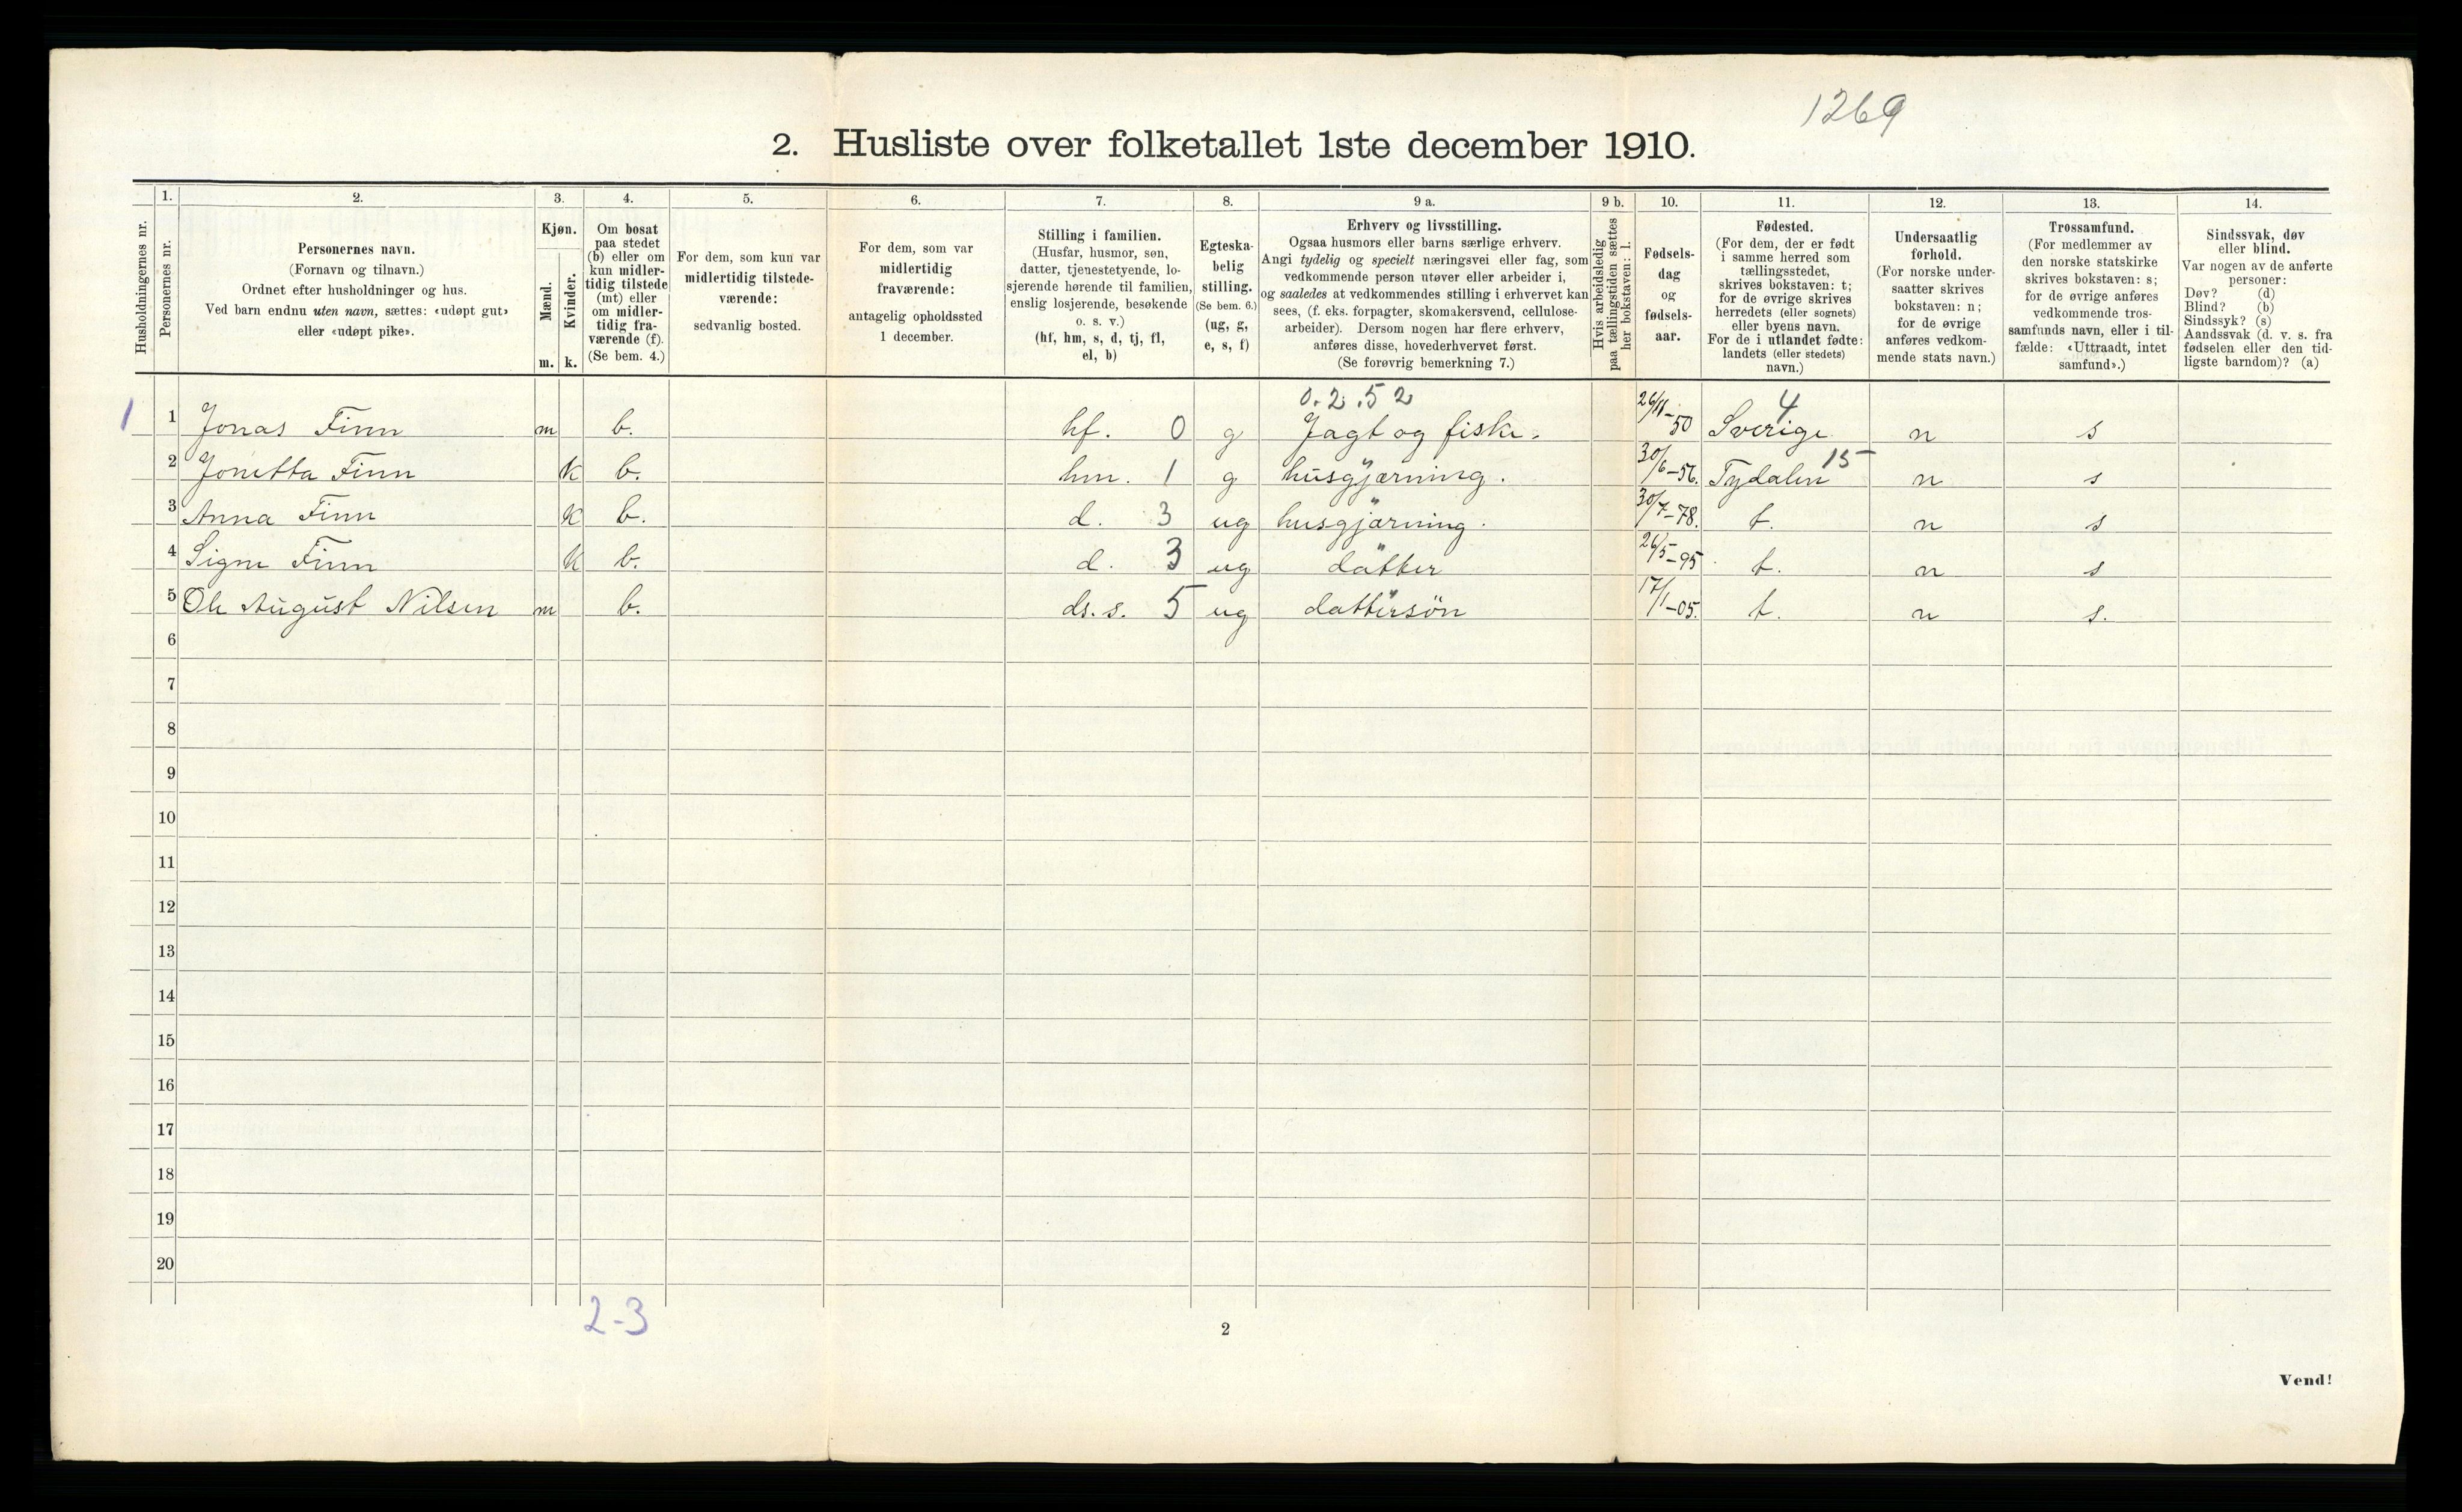 1269
2. Husliste over folketallet 1ste december 1910.
1. 2. 3. 4. 5. 6. 7. 8. 9 a. 9 b. 10. 11. 12. 13. 14.
Husholdningernes nr.
Personernes nr.
Personernes navn.
(Fornavn og tilnavn.)
Ordnet efter husholdninger og hus.
Ved barn endnu uten navn, sættes: «udøpt gut»
eller «udøpt pike».
Kjøn.
Mænd.
Kvinder.
m. k.
Om bosat
paa stedet
(b) eller om
kun midler-
tidig tilstede
(mt) eller
om midler-
tidig fra-
værende (f).
(Se bem. 4.)
For dem, som kun var
midlertidig tilstede-
værende:
sedvanlig bosted.
For dem, som var
midlertidig
fraværende:
antagelig opholdssted
1 december.
Stilling i familien.
(Husfar, husmor, søn,
datter, tjenestetyende, lo-
sjerende hørende til familien,
enslig losjerende, besøkende
o. s. v.)
(hf, hm, s, d, tj, fl,
el, b)
Egteska-
belig
stilling.
(Se bem. 6.)
(ug, g,
e, s, f)
Erhverv og livsstilling.
Ogsaa husmors eller barns særlige erhverv.
Angi tydelig og specielt næringsvei eller fag, som
vedkommende person utøver eller arbeider i,
og saaledes at vedkommendes stilling i erhvervet kan
sees, (f. eks. forpagter, skomakersvend, cellulose-
arbeider). Dersom nogen har flere erhverv,
anføres disse, hovederhvervet først.
(Se forøvrig bemerkning 7.)
Hvis arbeidsledig
paa tællingstiden sættes
her bokstaven: l.
Fødsels-
dag
og
fødsels-
aar.
Fødested.
(For dem, der er født
i samme herred som
tællingsstedet,
skrives bokstaven: t;
for de øvrige skrives
herredets (eller sognets)
eller byens navn.
For de i utlandet fødte:
landets (eller stedets)
navn.)
Undersaatlig
forhold.
(For norske under-
saatter skrives
bokstaven: n;
for de øvrige
anføres vedkom-
mende stats navn.)
Trossamfund.
(For medlemmer av
den norske statskirke
skrives bokstaven: s;
for de øvrige anføres
vedkommende tros-
samfunds navn, eller i til-
fælde: «Uttraadt, intet
samfund».)
Sindssvak, døv
eller blind.
Var nogen av de anførte
personer:
Døv? (d)
Blind? (b)
Sindssyk? (s)
Aandssvak (d. v. s. fra
fødselen eller den tid-
ligste barndom)? (a)
0.2.52 4
1 1 Jonas Finn m b. hf. 0 g Jagt og fiske. 26/11-50 Sverige n s
2 Jonetta Finn k b. hm. 1 g husgjærning. 30/6-56. Tydalen 15 n s
3 Anna Finn k b. d. 3 ug husgjærning. 30/7-78. t. n s
4 Signe Finn k b. d. 3 ug datter 26/5-95 t. n s
5 Ole August Nilsen m b. ds. s. 5 ug dattersøn 17/1-05. t. n s.
6
7
8
9
10
11
12
13
14
15
16
17
18
19
20
2-3
2
Vend!